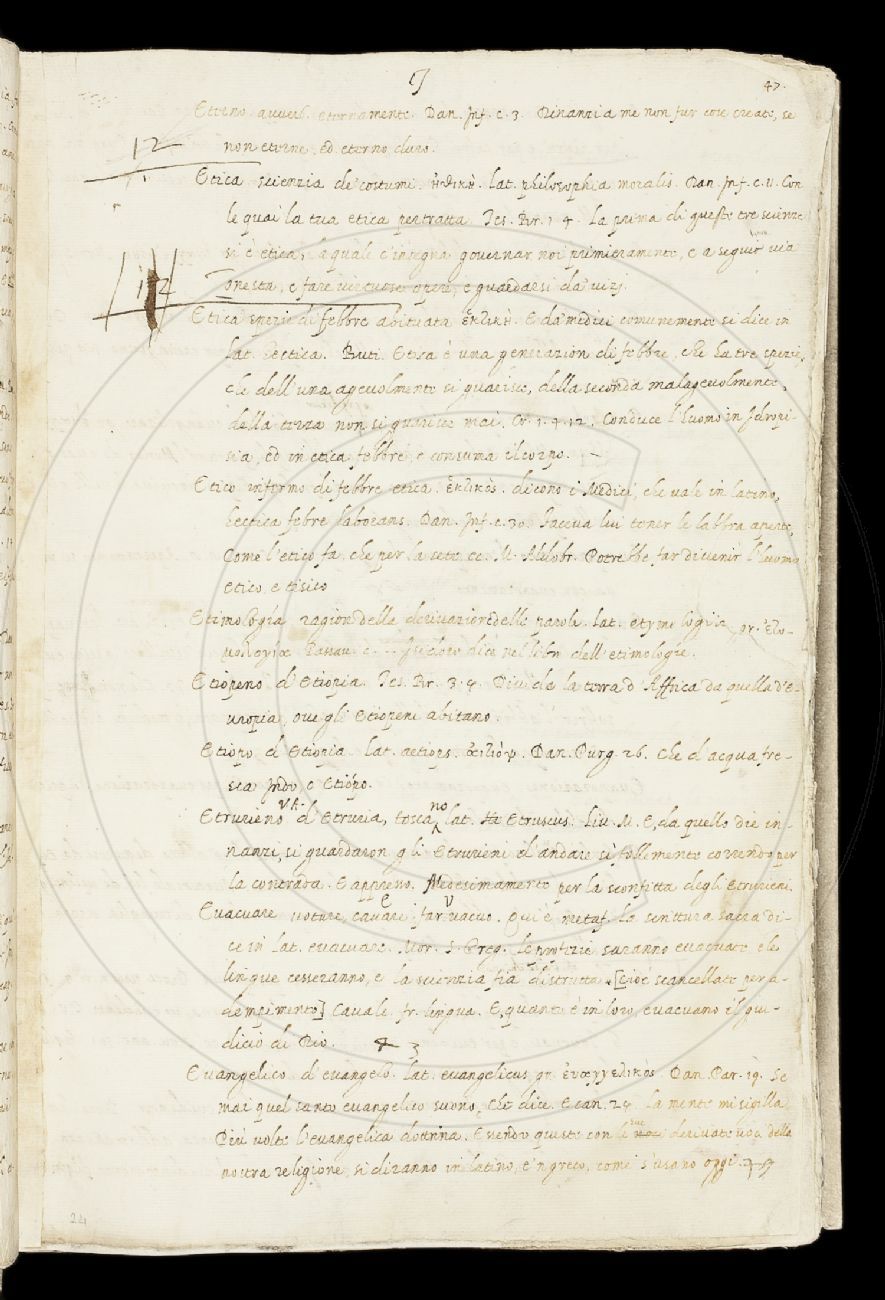 47.
Etterno avverb. eternamente. Dan. Inf. c. 3. Dinanzi a me non fur cose create, se
non eterne, ed eterno duro.
12
Etica scienzia de costumi. ἠθικὴ. lat. philosophia moralis. Dan. Inf. c. 11. Con
le quai la tua etica pertratta. Tes. Br. 1. 4. La prima di queste tre scienze
si è etica, la quale c'insegna governar noi primieramente, e a seguir via
onesta, e fare virtuose opere, e guardarsi da vizj.
112
Etica spezie di febbre abituata ἑκτικὴ. E da medici comunemente si dice in
lat. hectica. Buti. Etica è una generazion di febbre, che ha tre spezie,
che dell'una agevolmente si guarisce, della seconda malagevolmente,
della terza non si guarisce mai. Cr. 1. 4. 12. Conduce l'huomo in Idropi-
sia, ed in etica febbre, e consuma il corpo.
Etico infermo di febbre etica. ἑκτικὸς. dicono i Medici, che vale in latino,
hectica febre laborans. Dan. Inf. c. 30. Faceva lui tener le labbra aperte,
Come l'etico fa, che per la sete ec. M. Aldobr. Potrebbe far divenir l'huomo
etico, e tisico
Etimologia ragion della derivazione delle parole. lat. etymologia, gr. ἐτυ-
μολογία Passav. c. -- Isidoro dice nel libro dell'etimologie.
Etiopeno d'Etiopia. Tes. Br. 3. 4. Divide la terra d'Affrica da quella d'E-
uropia, ove gli Etiopeni abitano.
Etiopo d'Etiopia. lat. aetiops. αἰθίοψ. Dan. Purg. 26. Che d'acqua fre-
sca Indo, o Etiópo.
Etrurieno d'Etruria, toscano lat. Etruscus. Liv. M. E, da quello die in-
nanzi, si guardaron gli Etrurieni d'andare sì follemente correndo per
la contrada. E appresso. Medesimamente per la sconfitta degli Etrurieni.
Evacuare votare, cavare, far vacuo. qui è metaf. la scrittura sacra di-
ce in lat. evacuare. Mor. S. Greg. Le profezie saranno evacuate e le
lingue cesseranno, e la scienzia fia distrutta [cioè scancellate per a-
dempimento] Cavalc. fr. lingua. E quanto è in loro, evacuano il giu-
dicio di Dio.
Evangelico d'evangelo. lat. evangelicus, gr. ἐυαγγελικὸς. Dan. Par. 19. Se
mai quel santo evangelico suono, Che dice. E can. 24. La mente mi sigilla
Più volte l'evangelica dottrina. Essendo queste con le sue derivate voci della
nostra religione, si diranno in latino, e'n greco, come s'usano oggi.
24